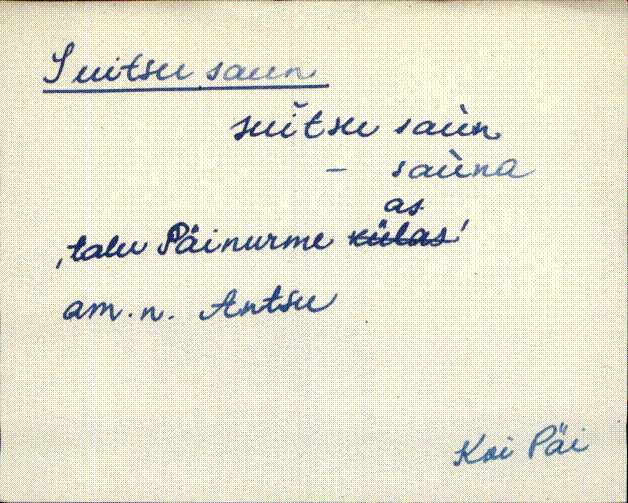 Suitsu saun
suĭtsu saùn
– saùna
as
‚talu Päinurme külas’
am. n. Antsu
Koi Päi